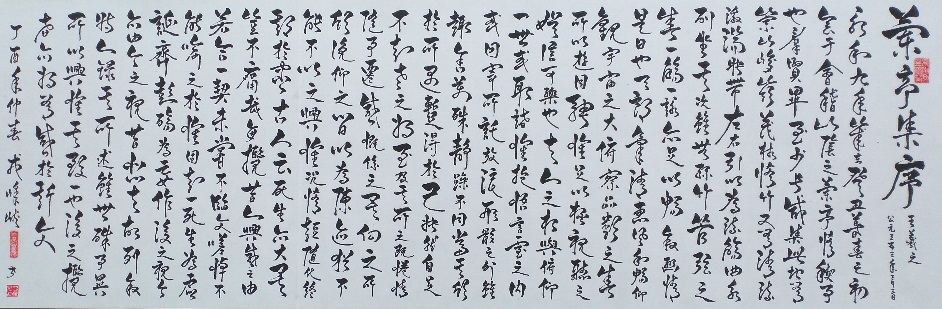 蘭亭集序
王羲之
公元三五三年三月三日
永和九年歲在癸丑暮春之初
會于會稽山陰之蘭亭修稧事
也群賢畢至少長咸集此地有
崇山峻領茂林修竹又有清流
激湍映帶左右引以為流觴曲水
列坐其次雖無絲竹管弦之
盛一觴一詠亦足以暢敘幽情
是日也天朗氣清惠風和暢仰
觀宇宙之大俯察品類之盛
所以遊目騁懷足以極視聽之
娛信可樂也夫人之相與俯仰
一世或取諸懷抱悟言室之內
或因寄所託放浪形骸之外雖
趣舍萬殊靜躁不同當其欣
於所遇暫得於己快然自足
不知老之將至及其所之既惓情
隨事遷感慨係之矣向之所
欣俛仰之間以為陳迹猶不
能不以之興懷況修短隨化終
期於盡古人云死生亦大矣
豈不痛哉每攬昔人興感之由
若合一契未嘗不臨文嗟悼不
能喻之於懷固知一死生為虛
誕齊彭殤為妄作後之視今
亦由今之視昔悲夫故列敘
時人錄其所述雖世殊事異
所以興懷其致一也後之攬
者亦將有感於斯文
丁酉年仲春